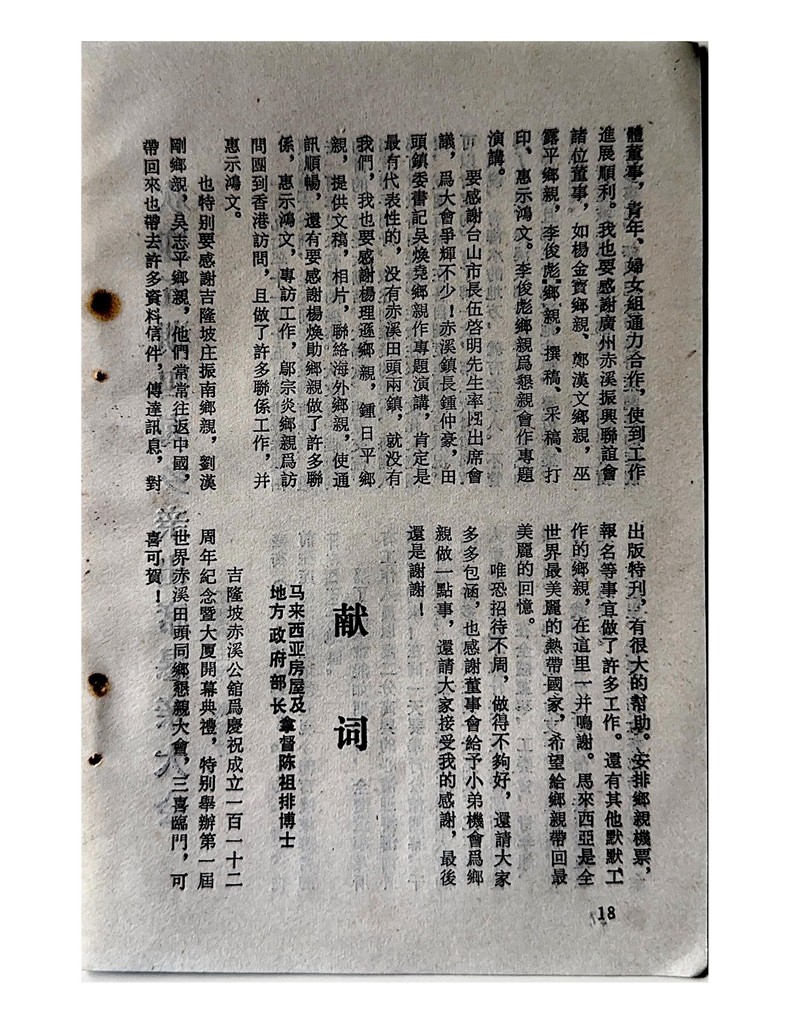 體董事，青年、婦女組通力合作，使到工作
進展順利。我也要感謝廣州赤溪振興聯誼會
諸位董事，如楊金寶鄉親、鄭漢文鄉親，巫
露平鄉親，李俊彪鄉親，撰稿、采稿、打
印、惠示鴻文。李俊彪鄉親爲懇親會作專題
演講。
要感謝台山市長伍啓明先生率團出席會
議，爲大會爭輝不少！赤溪鎮長鍾仲豪，田
頭鎮委書記吳煥堯鄉親作專題演講，肯定是
最有代表性的，没有赤溪田頭兩鎮，就没有
我們，我也要感謝楊理遜鄉親，鍾日平鄉
親，提供文稿，相片，聯絡海外鄉親，使通
訊順暢，還有要感謝楊煥助鄉親做了許多聯
係，惠示鴻文，專訪工作，鄔宗炎鄉親爲訪
問團到香港訪問，且做了許多聯係工作，并
惠示鴻文。
也特别要感謝吉隆坡庄振南鄉親，劉漢
剛鄉親，吳志平鄉親，他們常常往返中國，
帶回來也帶去許多資料信件，傳達訊息，對
出版特刊，有很大的幫助。安排鄉親機票，
報名等事宜做了許多工作。還有其他默默工
作的鄉親，在這里一并鳴謝。馬來西亞是全
世界最美麗的熱帶國家，希望給鄉親帶回最
美麗的回憶。
唯恐招待不周，做得不夠好，還請大家
多多包涵，也感謝董事會給予小弟機會爲鄉
親做一點事，還請大家接受我的感謝，最後
還是謝謝！
献词
马来西亚房屋及
地方政府部长
拿督陈祖排博士
吉隆坡赤溪公館爲慶祝成立一百一十二
周年紀念暨大厦開幕典禮，特别舉辦第一屆
世界赤溪田頭同鄉懇親大會，三喜臨門，可
喜可賀！
18